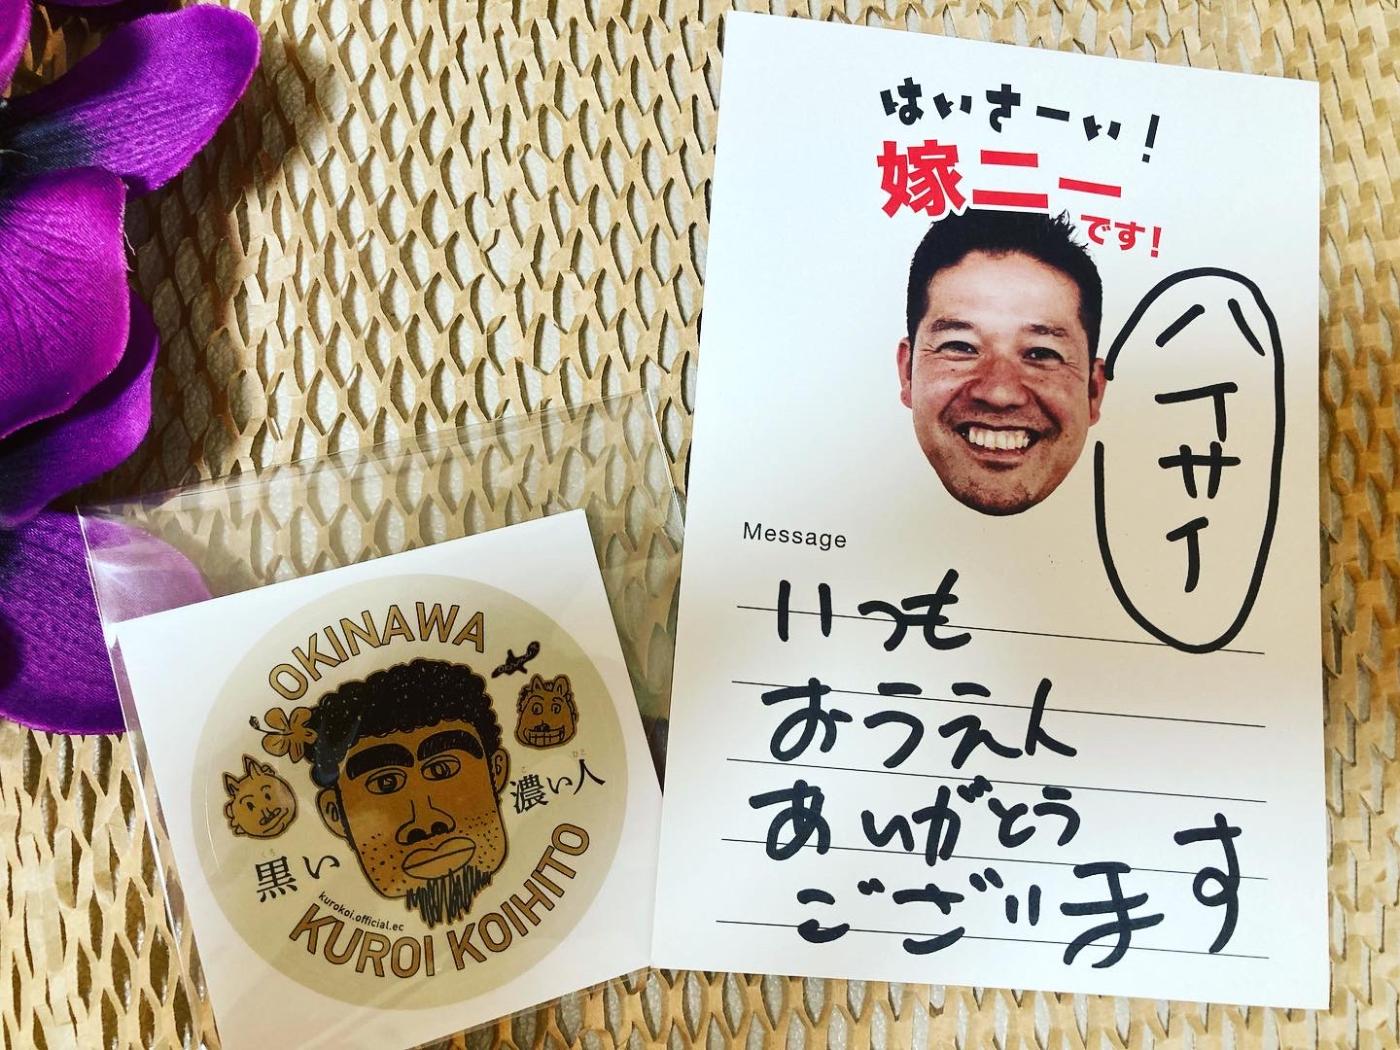 はいさーい!
嫁ニー
です!
ハイサイ
Message
いつも
おうえん
ありがとう
ございます
OKINAWA
濃い人
黒い
kurokoi.official.ec
KUROI KOIHITO